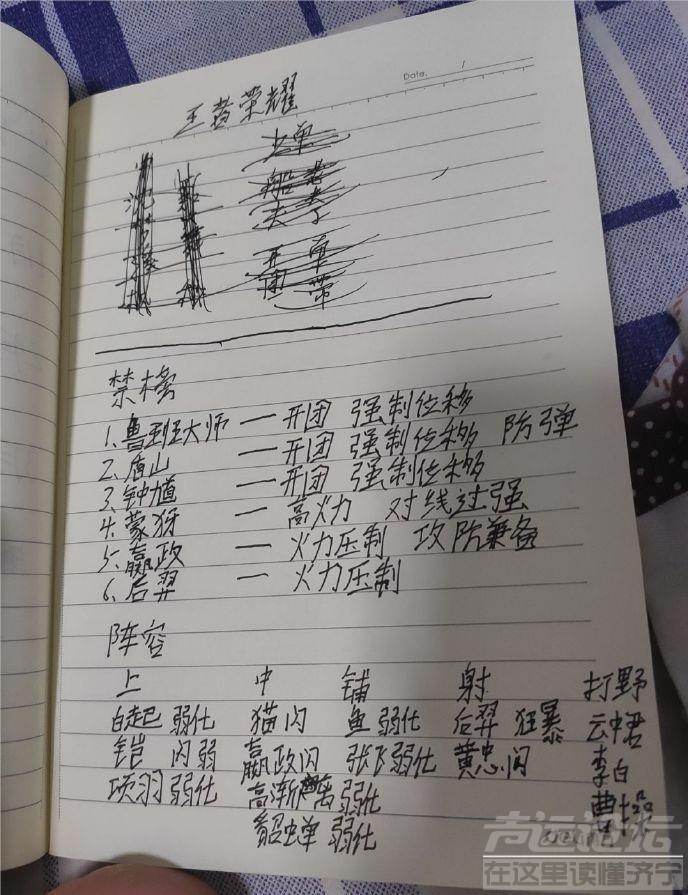 Date. 1
王者荣耀
上单
禁榜
1、鲁班大师 — 开团 强制位移
2、盾山 — 开团 强制位移 防弹
3、钟馗 — 开团 强制位移
4、蒙犽 — 高火力 对线过强
5、嬴政 — 火力压制 攻防兼备
6、后羿 — 火力压制
阵容
上 中 铺 射 打野
白起 弱化 猫闪 鱼 弱化 后羿 狂暴 云中君
铠 闪弱 嬴政闪 张飞弱化 黄忠闪 李白
项羽 弱化 高渐离 弱化 曹操
貂蝉 弱化
在这里读懂济宁